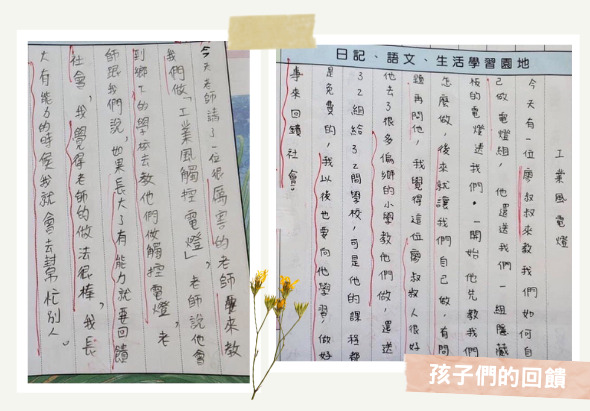 今天老師請了一位很厲害的老師來教
我們做「工業風觸控電燈」,老師說他會
到鄉下的學校去教他們做觸控電燈,老
師跟我們說,如果長大了有能力就要回饋
社會,我覺得老師的做法很棒,我長
大有能力的時候我就會去幫忙別人。
日記、語文、生活學習園地
工業風電燈
今天有一位廖叔叔來教我們如何自
己做電燈組,他還送我們一組隱藏
板的電燈送我們。一開始他先教我們
怎麼做,後來就讓我們自己做,有問
題再問他,我覺得這位廖叔叔人很好
他去了很多偏鄉的小學教他們做,還送
32組給32間學校,可是他的課程都
是免費的,我以後也要向他學習,做好
事來回饋社會。
孩子們的回饋